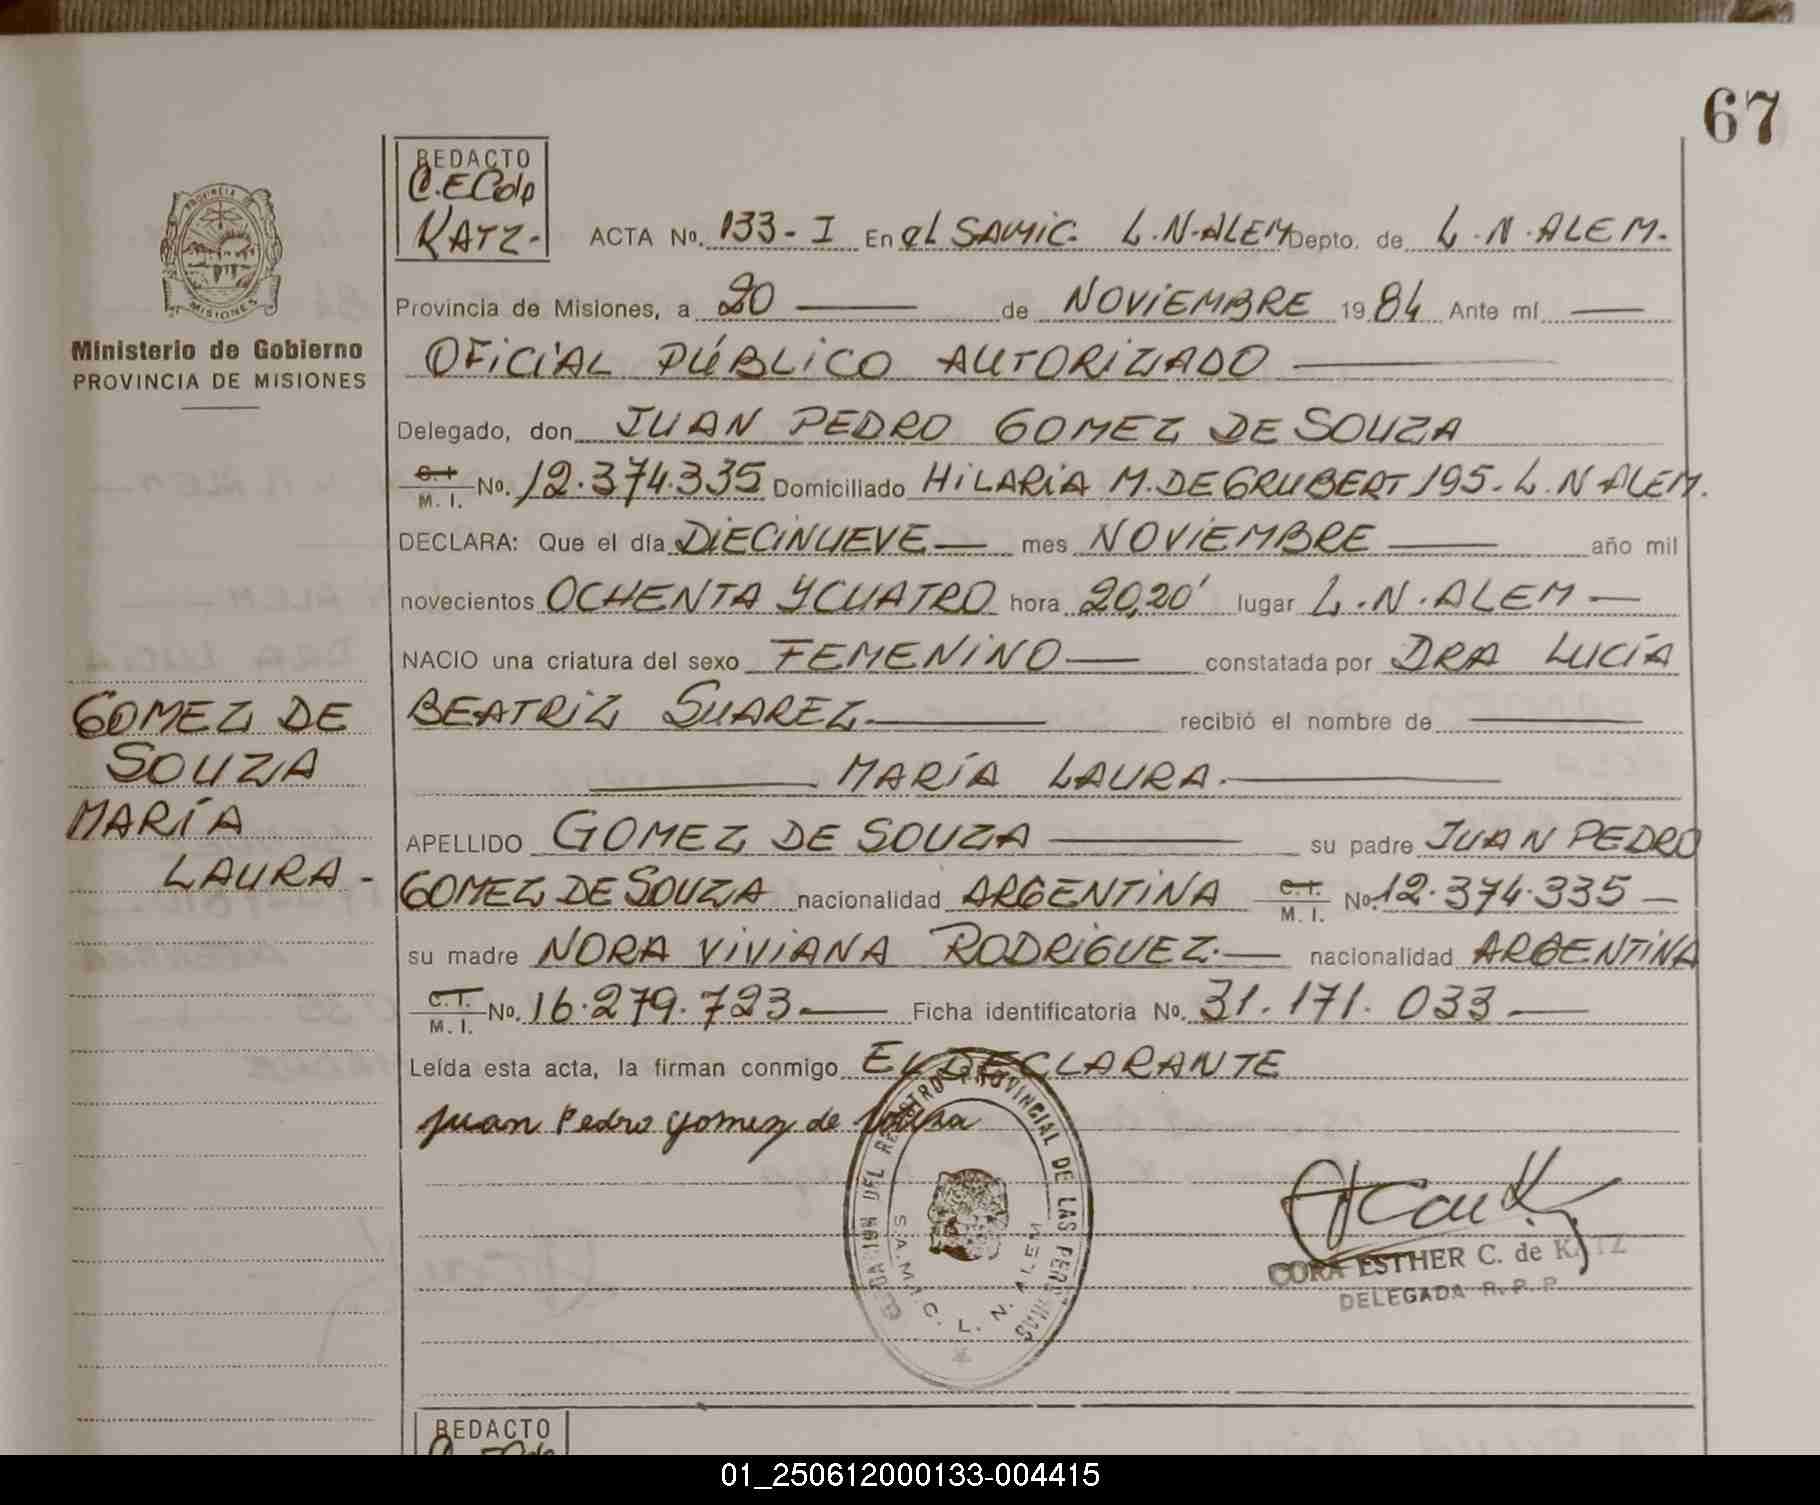 67
REDACTO
C.E Cde
KATZ-
ACTA No. 133-I En el SAMIC. L.N-ALEM Depto. de L.N.ALEM.
PROVINCIA DE
MISIONES
Ministerio de Gobierno
PROVINCIA DE MISIONES
Provincia de Misiones, a 20 de NOVIEMBRE 1984 Ante mí
OFICIAL PÚBLICO AUTORIZADO
Delegado, don JUAN PEDRO GOMEZ DE SOUZA
C.I. M.I. No. 12.374.335 Domiciliado HILARIA M. DE GRUBERT 195. L.N ALEM.
DECLARA: Que el día DIECINUEVE mes NOVIEMBRE año mil
novecientos OCHENTA Y CUATRO hora 20,20' lugar L.N.ALEM
NACIO una criatura del sexo FEMENINO constatada por DRA LUCÍA
BEATRIZ SUAREZ recibió el nombre de
MARÍA LAURA.
GOMEZ DE
SOUZA
MARÍA
LAURA-
APELLIDO GOMEZ DE SOUZA su padre JUAN PEDRO
GOMEZ DE SOUZA nacionalidad ARGENTINA C.I. M.I. No. 12.374.335
su madre NORA VIVIANA RODRIGUEZ. nacionalidad ARGENTINA
C.I. M.I. No. 16.279.723 Ficha identificatoria No. 31.171.033
Leída esta acta, la firman conmigo EL DECLARANTE
Juan Pedro Gomez de Souza
DEL REGISTRO PROVINCIAL DE LAS PERSONAS
S.A.M.I.C. L. N. ALEM
CORA ESTHER C. de KATZ
DELEGADA R.P.P.
REDACTO
01_250612000133-004415